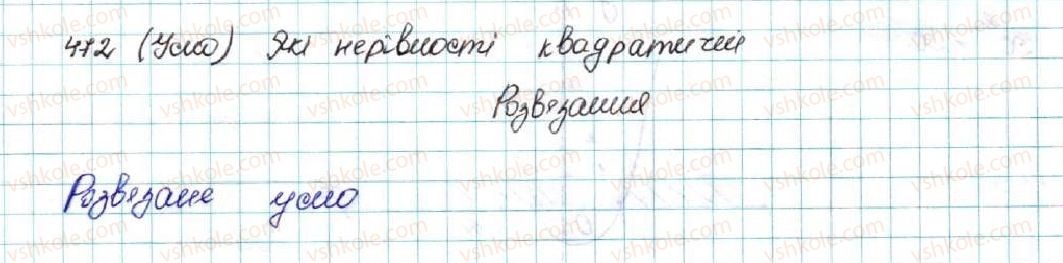 472 (Усно) Які нерівності квадратичні
Розвязання
Розвязане усно